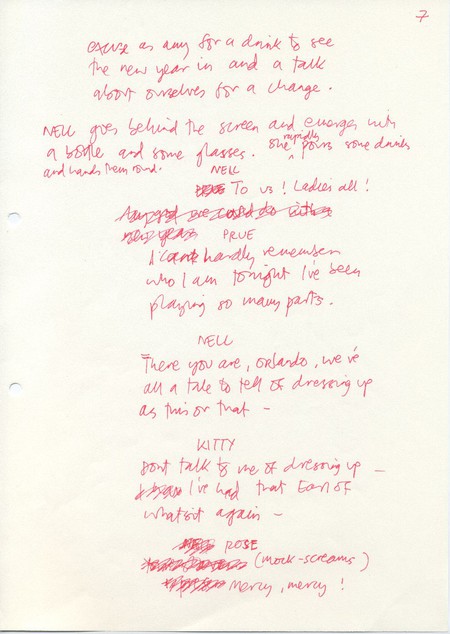 7
cause as any for a drink to see
the new year in and a talk
about ourselves for a change.
NELL goes behind the screen and emerges with
a bottle and some glasses. She rapidly pours some drinks
and hands them round.
NELL
To us! Ladies all!
PRUE
I can hardly remember
who I am tonight I've been
playing so many parts.
NELL
There you are, Orlando, we've
all a tale to tell of dressing up
as this or that –
KITTY
Dont talk to me of dressing up –
I've had that Earl of
whatsit again –
ROSE
(mock-screams)
Mercy, mercy!